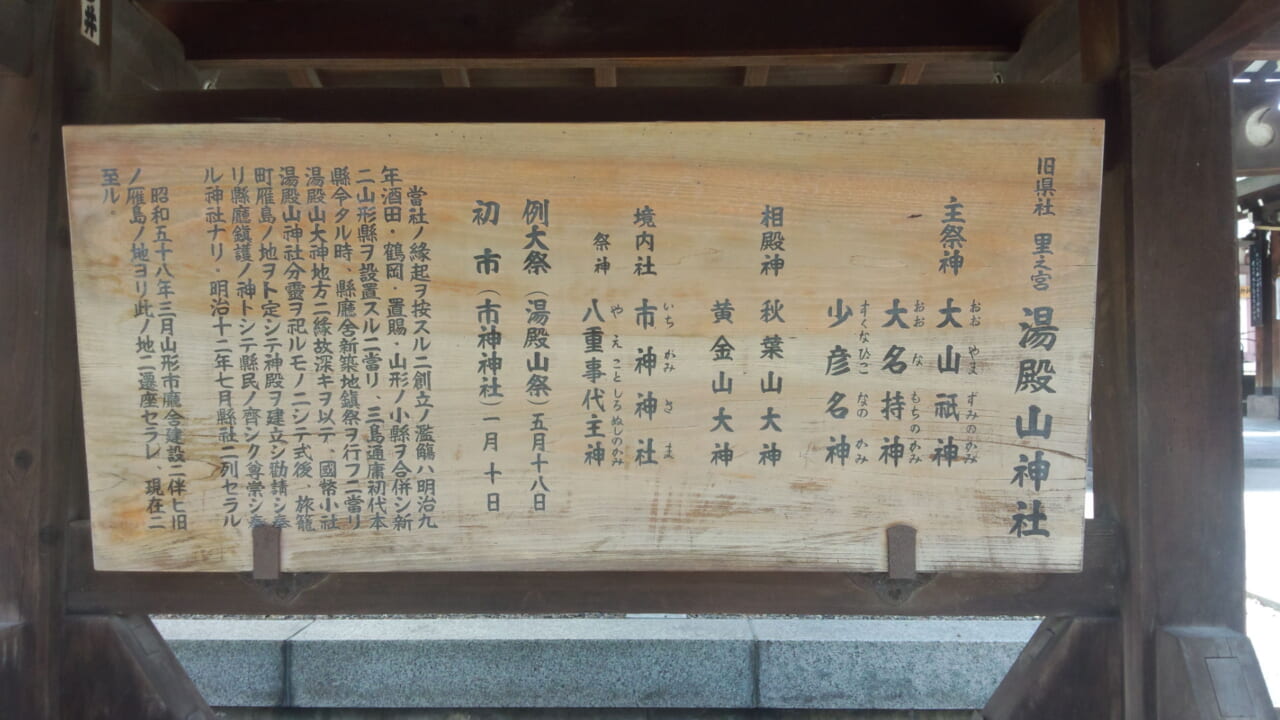 旧県社 里之宮 湯殿山神社
主祭神 大山祇神
おお やま ずみのかみ
大名持神
おお な もちのかみ
少彦名神
すくなひこ なの かみ
相殿神 秋葉山大神
黄金山大神
境内社 市神神社
いち がみ さ ま
祭神 八重事代主神
や え ことしろぬしのかみ
例大祭(湯殿山祭)五月十八日
初市(市神神社)一月十日
當社ノ緣起ヲ按スルニ創立ノ濫觴ハ明治九
年酒田・鶴岡・置賜・山形ノ小縣ヲ合併シ新
ニ山形縣ヲ設置スルニ當リ、三島通庸初代本
縣令タル時、縣廳舍新築地鎭祭ヲ行フニ當リ
湯殿山大神地方ニ緣故深キヲ以テ、國幣小社
湯殿山神社分靈ヲ祀ルモノニシテ式後、旅籠
町雁島ノ地ヲト定シテ神殿ヲ建立シ勸請シ奉
リ縣廳鎭護ノ神トシテ縣民ノ齊シク尊崇シ奉
ル神社ナリ・明治十二年七月縣社ニ列セラル
昭和五十八年三月山形市廳舎建設ニ伴ヒ旧
ノ雁島ノ地ヨリ此ノ地ニ遷座セラレ、現在ニ
至ル・
井